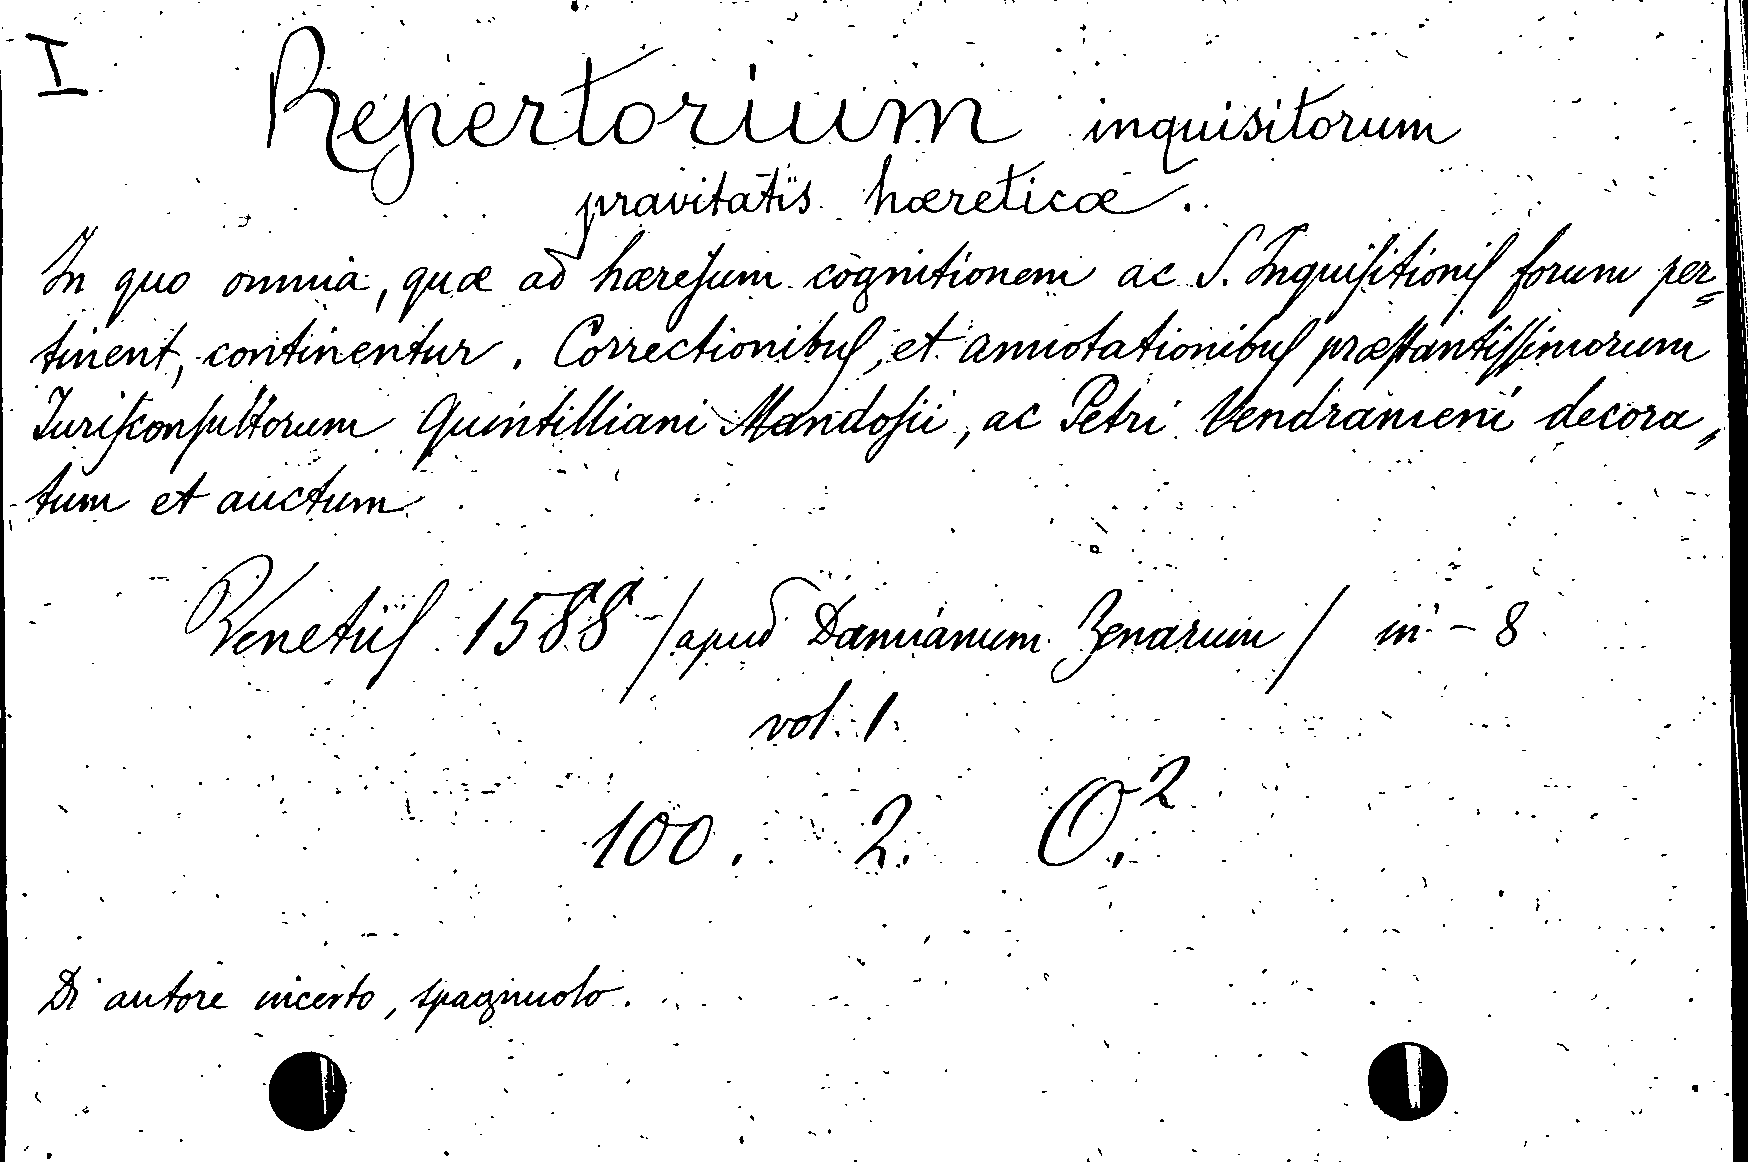 I
Repertorium inquisitorum
pravitatis hæreticæ.
In quo omnia, quæ ad hæreſum cognitionem ac S. Inquiſitioniſ forum per=
tinent, continentur. Correctionibuſ, et annotationibuſ præſtantiſſimorum
Juriſconſultorum Quintilliani Mandoſii, ac Petri Vendrameni decora,,
tum et auctum
Venetiiſ 1588 /apud Damianum Zenarum/ in - 8
vol. 1.
100. 2. O.²
Di autore incerto, spagnuolo.